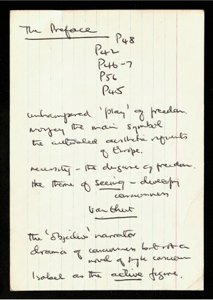 The Preface P48
P42
P46-7
P56
P45
unhampered 'play' of freedom
the main symbol
the cultivated aesthetic
of Europe.
necessity - the disguise of freedom.
the theme of seeing - develops
consciousness
the 'objective' narrator
drama of consciousness but not a
novel of
Isabel as the active figure.